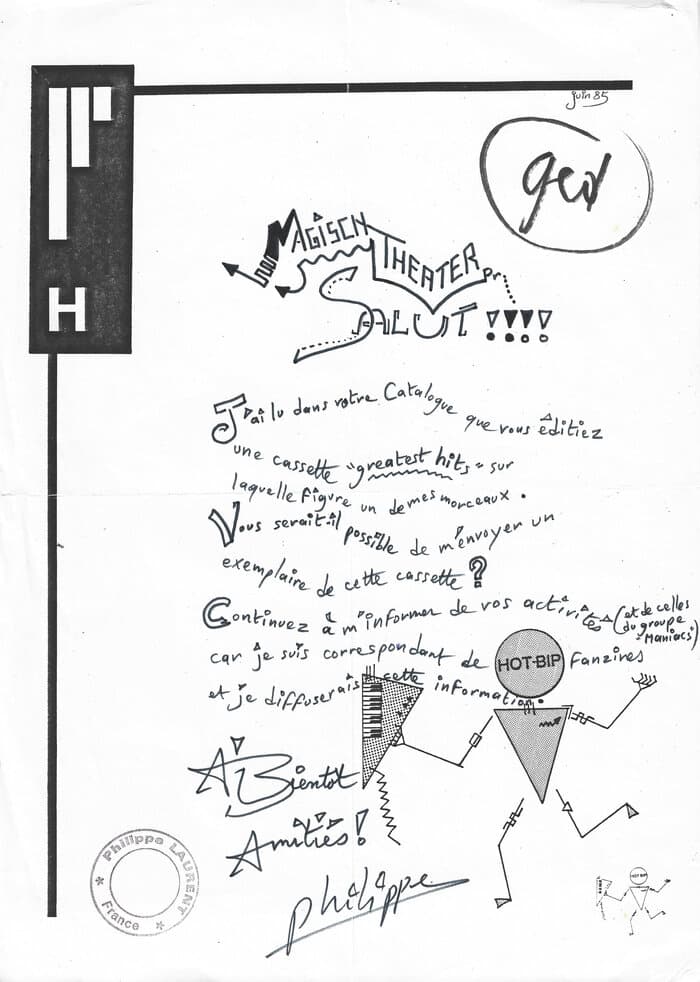 juin 85
ged
H
MAGISCH
THEATER pr
SALUT !!!!
J'ai lu dans votre Catalogue que vous éditiez
une cassette "greatest hits" sur
laquelle figure un de mes morceaux.
Vous serait-il possible de m'envoyer un
exemplaire de cette cassette ?
Continuez à m'informer de vos activités (et de celles
du groupe
"Maniacs")
car je suis correspondant de HOT-BIP Fanzines
et je diffuserais cette information.
A Bientot
Amitiés !
philippe
Philippe LAURENT
France
HOT-BIP